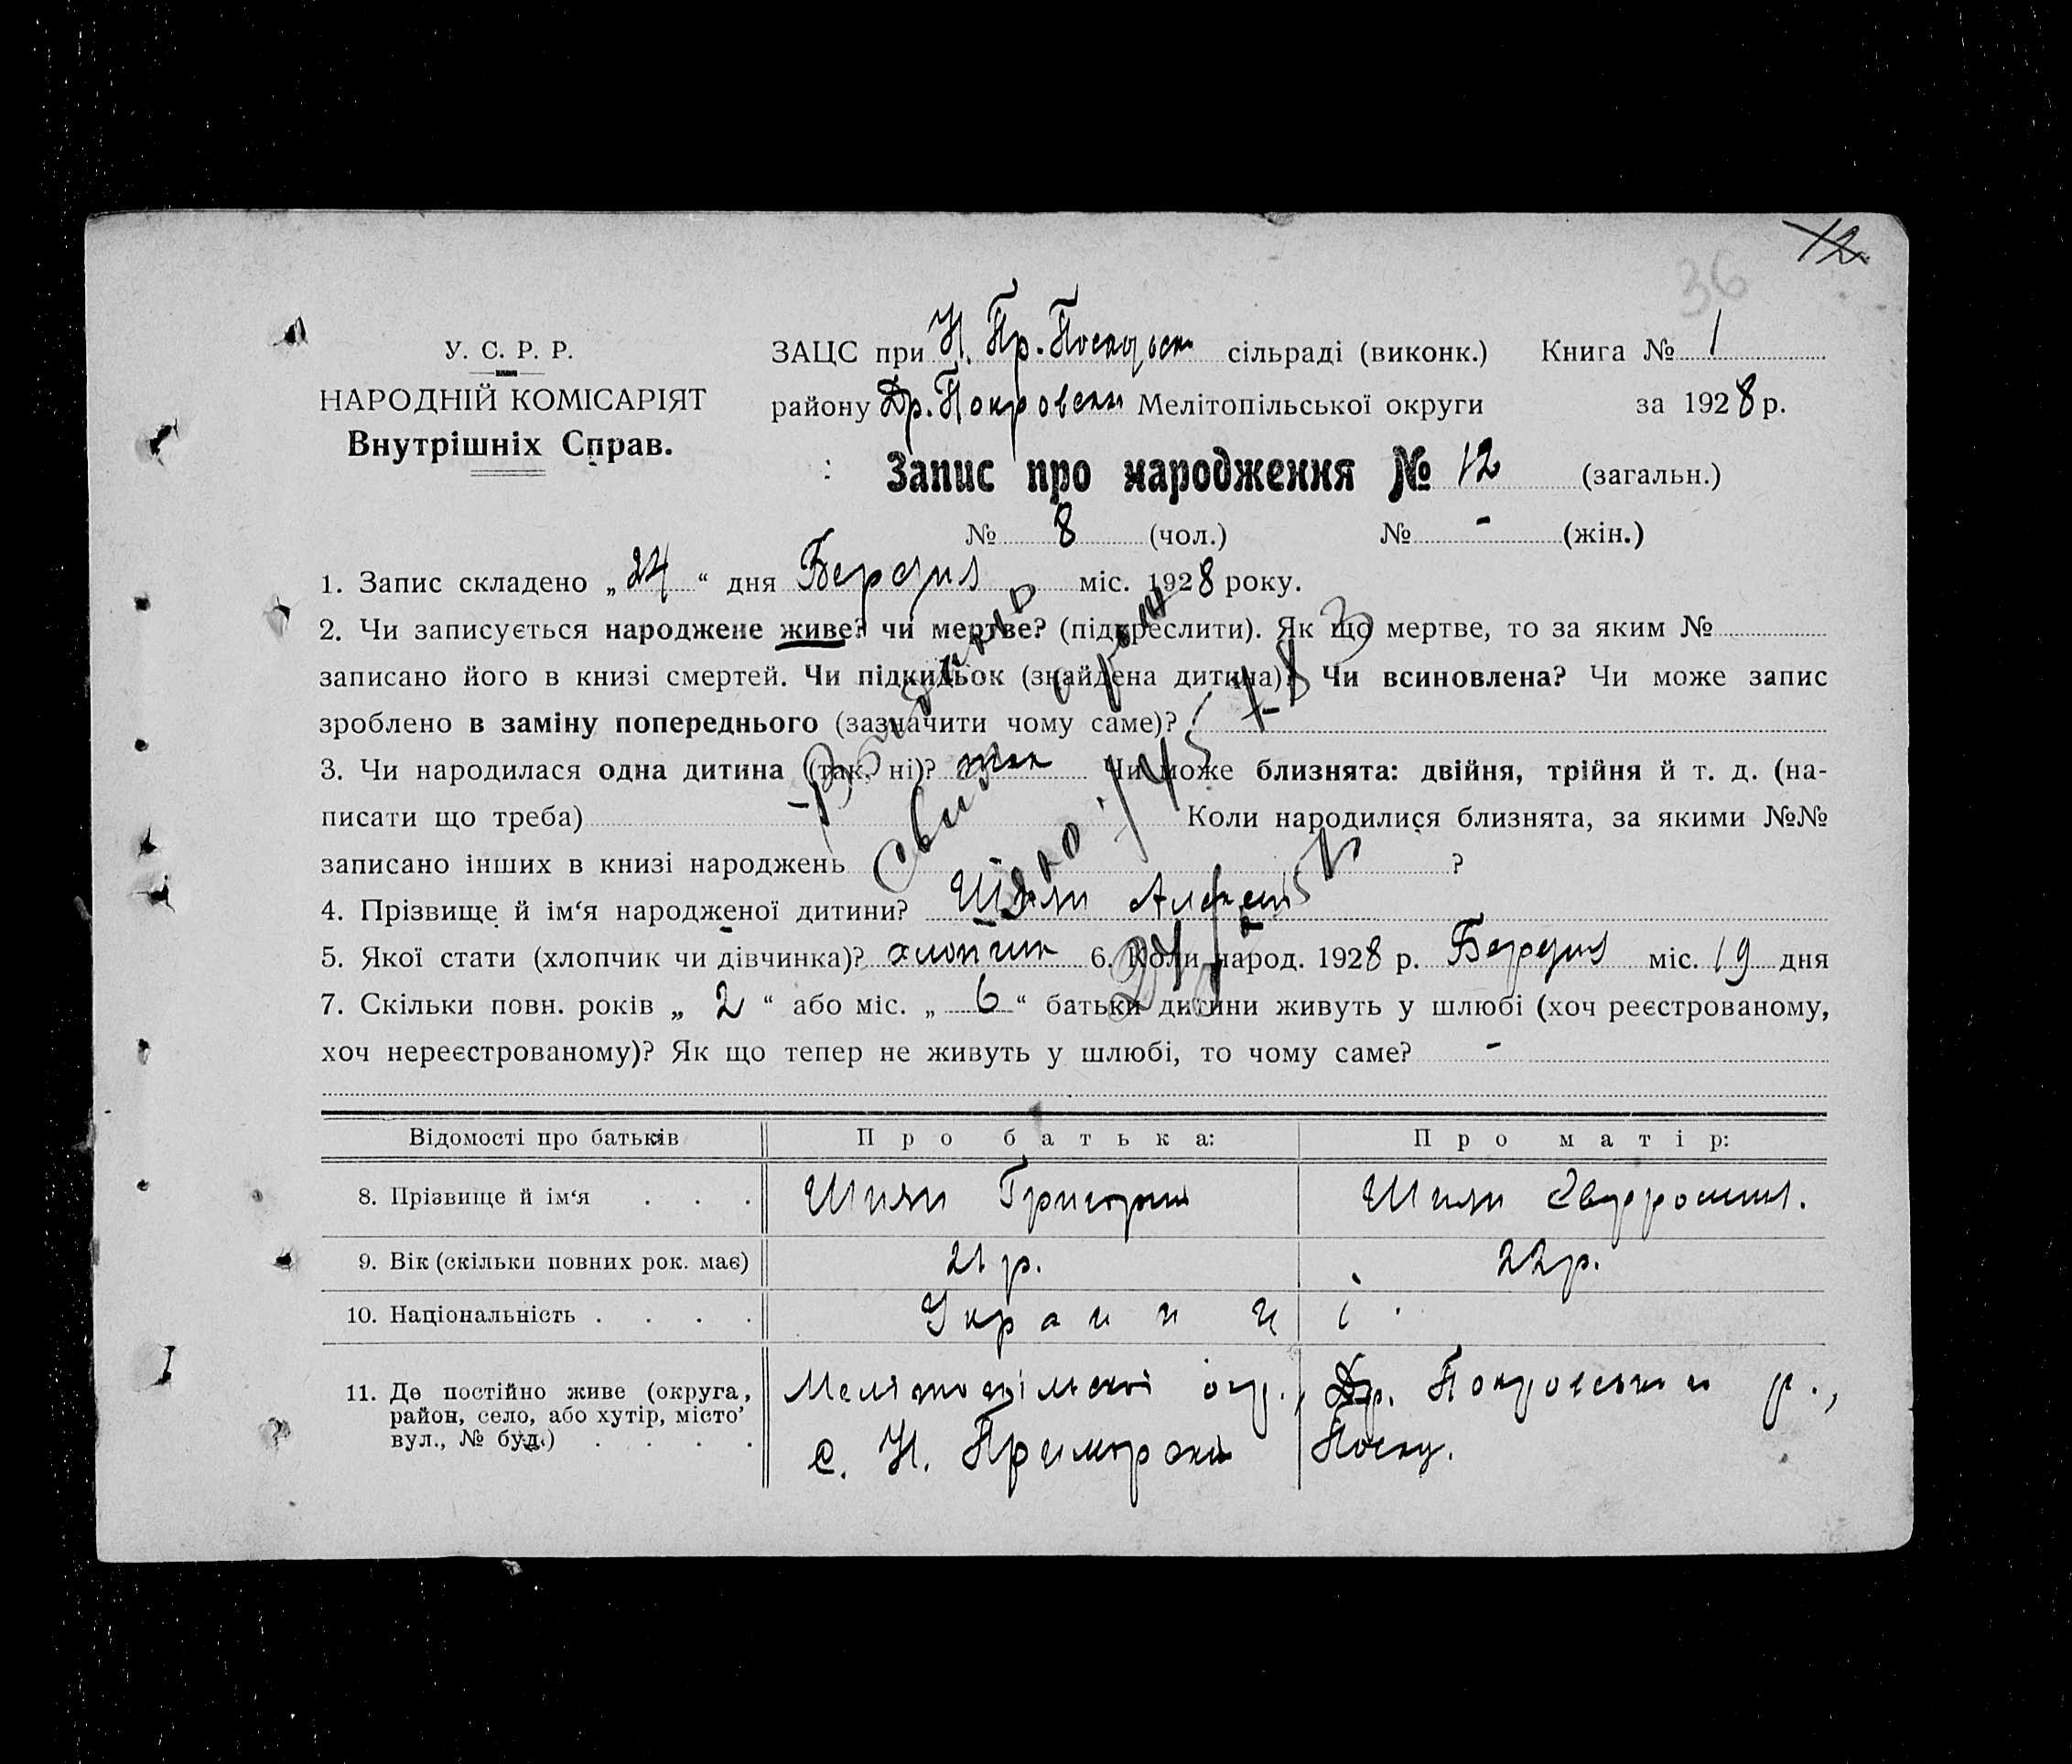 12
36
У. С. Р. Р.
НАРОДНІЙ КОМІСАРІЯТ
Внутрішніх Справ.
ЗАЦС при Н. Пр. Посадьск сільраді (виконк.) Книга № 1
району Др. Покровськ Мелітопільської округи за 1928 р.
Запис про народження № 12 (загальн.)
№ 8 (чол.) № - (жін.)
1. Запис складено „24“ дня Березня міс. 1928 року.
2. Чи записується народжене живе? чи мертве? (підкреслити). Як що мертве, то за яким №
записано його в книзі смертей. Чи підкидьок (знайдена дитина)? Чи всиновлена? Чи може запис
зроблено в заміну попереднього (зазначити чому саме)?
3. Чи народилася одна дитина (так, ні)? так Чи може близнята: двійня, трійня й т. д. (на-
писати що треба) Коли народилися близнята, за якими №№
записано інших в книзі народжень ?
4. Прізвище й ім‘я народженої дитини? Шиян Алексій
5. Якої стати (хлопчик чи дівчинка)? хлопчик 6. Коли народ. 1928 р. Березня міс. 19 дня
7. Скільки повн. років „ 2 “ або міс. „ 6 “ батьки дитини живуть у шлюбі (хоч реєстрованому,
хоч нереєстрованому)? Як що тепер не живуть у шлюбі, то чому саме? -
Відомості про батьків Про батька: Про матір:
8. Прізвище й ім‘я . . . Шиян Григорий Шиян Євфросиния.
9. Вік (скільки повних рок. має) 21 р. 22 р.
10. Національність . . . . Украинці
11. Де постійно живе (округа, район, село, або хутір, місто’ вул., № буд.) . . . . Мелітопільскої окр., Др. Покровський р.,
с. Н. Приморский Посад.